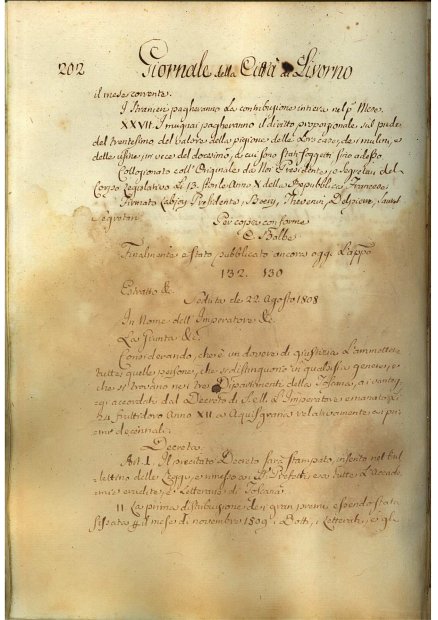 202 Giornale della Città di Livorno
il mese corrente.
I Stranieri pagheranno la contribusione intiera nel p.º Mese.
XXVII. I mugnai pagheranno il diritto proporzionale sul piede
del trentesimo del valore della pigione delle loro case, de i mulini, e
delle usine, in vece del decimo, a cui sono stati soggetti fino adesso
Collazionato coll'Originale da Noi Presidente, e Segretari del
Corpo Legislativo li 13. Anno X della Repubblica Francese.
Firmato Presidente, Thevenin,
Segretari
Per copia conforme
C. Balbo
Finalmente è stato pubblicato ancora oggi L'appo
132. 130
Estratto &c.
Seduta de 22. Agosto 1808
In Nome dell'Imperatore &c.
La Giunta &c.
Considerando, che è un dovere di giustizia L'ammettere
tutte quelle persone, che si distinguono in qualsisia genere, e
che si trovano nei tre Dipartimenti della Toscana, ai vantag
gi accordati dal Decreto di S. M. L'Imperatore emanato
24 fruttidoro Anno XII. a Aquisgrana relativamente ai pre
mi decennali.
Decreta.
Art. I. Il precitato Decreto sarà stampato, inserito nel bul
lettino delle Leggi, e rimesso ai Prefetti, e a tutte L'Accade
mie erudite, e Letterarie di Toscana
II. La prima distribusione dei gran premi essendo stata
fissata il mese di novembre 1809. i Dotti, i Letterati, e gli